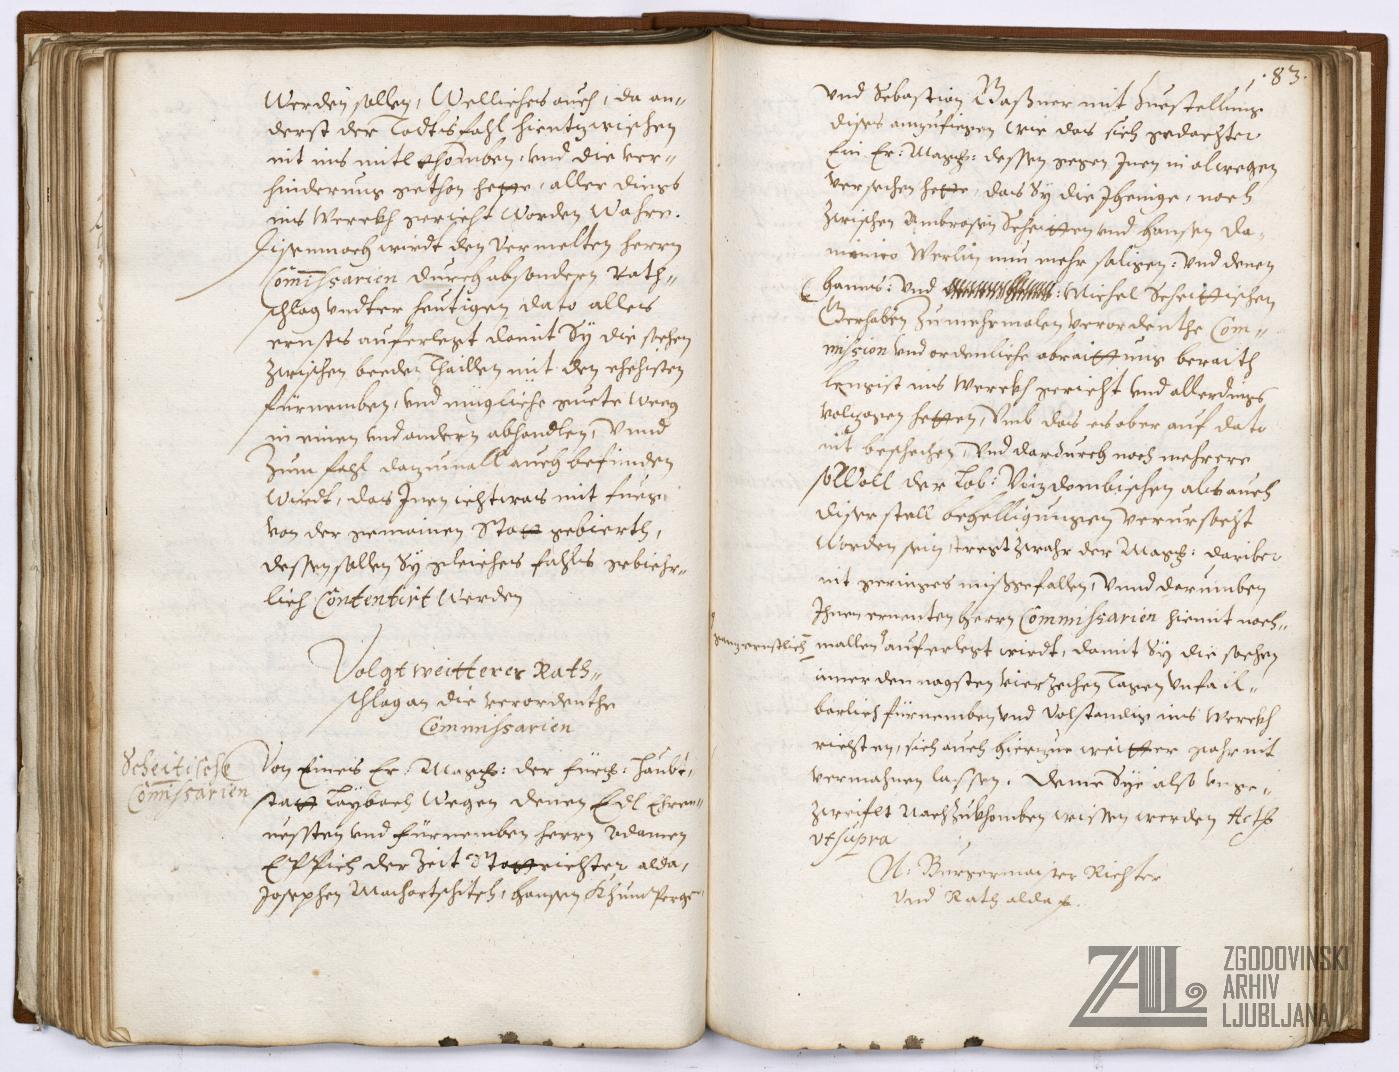 Werden sollen, Welliches auch, da an-
derst der Todtsfahl hientzwischen
nit ins mitl khomben, vnd die ver-
hinderung gethon hette, aller dings
ins Werckh gericht Worden Wahre.
Disemnach wirdt den vermelten herrn
Commissarien durch absondern Rath-
schlag vndter heutigen dato alles
ernsts auferlegt damit Sy die sachen
zwischen beeden Thaillen mit den ehehisten
fürnemben, vnd mügliche guete Weeg
in einen vnd andern abhandlen, Vnnd
Zum fahl dan auch befunden
Wirdt, das Inen ichtwas mit fueg
von der gemainen Statt gebierth,
dessen sollen Sy gleiches fahls gebiehr-
lich Contentirt Werden
Volgt weitterer Rath-
schlag an die verordenthe
Commissarien
Scheitische
Comissarien
Von Eines Er: Magt: der fürst: haubt-
statt Laybach Wegen denen Edl Ehrn-
uessten vnd fürnemben herrn Adamen
Eppich der Zeit Stattrichter alda,
Josephen Machortschitsch, hansen Khumperger
83.
vnd Sebastian Waßner mit Zuestellung
dises anzufiegen wie das sich gedachter
Ein Er: Magt: dessen gegen Inen in alwegen
versechen hette, das Sy die Jhenige, noch
zwischen Ambrosin Scheitten vnd hansen Do-
minico Werlin nun mehr saligen: vnd denen
hanns: vnd : Michel Scheittischen
Gerhaben zu mehrmalen verordenthe Com-
mission vnd ordenliche abraittung beraith
lengist ins Werckh gericht vnd allerdings
volzogen hetten, Vmb das es aber auf dato
nit beschechen, Vnd dardurch noch mehrere
so Woll der Lob: Vizdombischen als auch
diser stell behelligungen verursacht
Worden sein, tregt zwahr der Magt: dariber
nit geringes mißgefallen, Vnnd darumben
Ihnen ernenten herrn Commissarien hiemit noch-
ganz ernstlich
mallen auferlegt wirdt, damit Sy die sachen
inner den nagsten vierzechen Tagen vnfail-
barlich fürnemben vnd volstandig ins Werckh
richten, sich auch hierzue weitter gahr nit
vermahnen lassen. Deme Sye also vnge-
zweiflt Nachzukhomben wissen werden Acth
vt supra
N: Burgermaister Richter
vnd Rath alda
ZAL
ZGODOVINSKI
ARHIV
LJUBLJANA